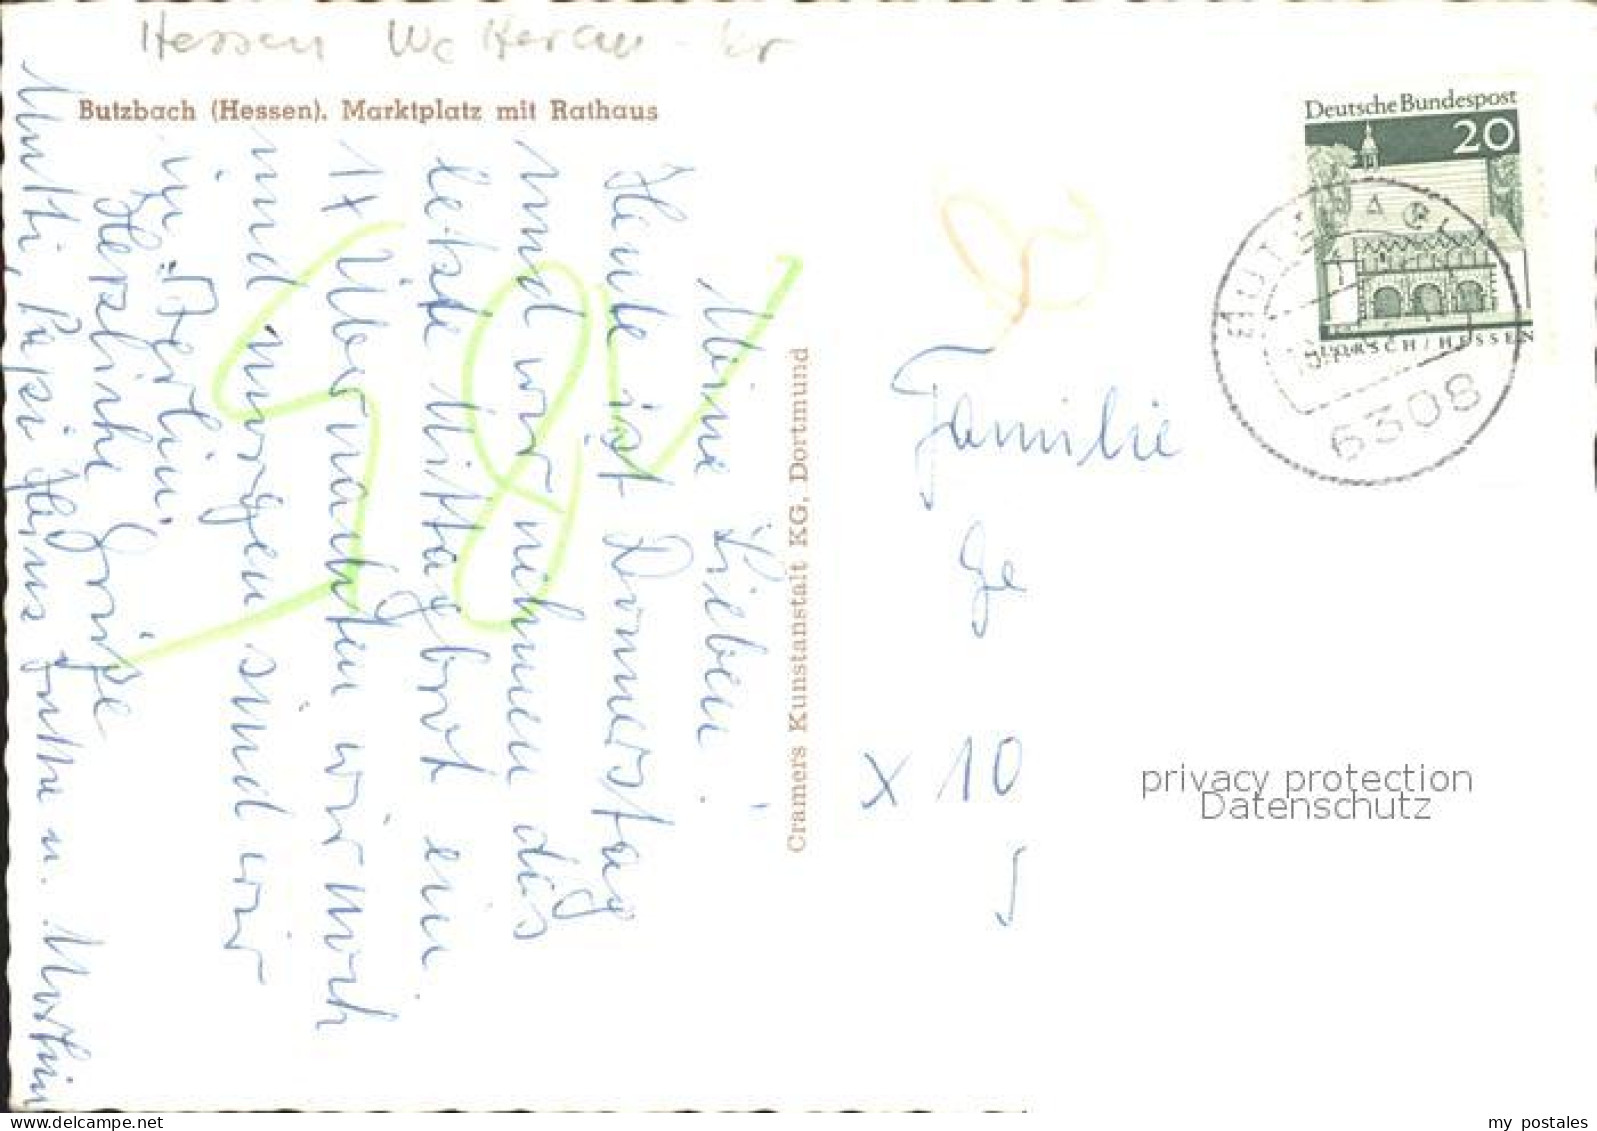 Hessen Wetterau-Kr
Butzbach (Hessen). Marktplatz mit Rathaus
Meine Lieben
Heute ist Donnerstag
und wir nehmen das
letzte Mittagbrot ein.
1x Übernachten wir noch
und morgen sind wir
in Berlin.
Herzliche Grüße
Mutti, Papi Heinz u. Martin
Cramers Kunstanstalt KG, Dortmund
Deutsche Bundespost
20
LORSCH/HESSEN
BUTZBACH
6308
Familie
Ge
x 10
privacy protection
Datenschutz
www.delcampe.net
my postales